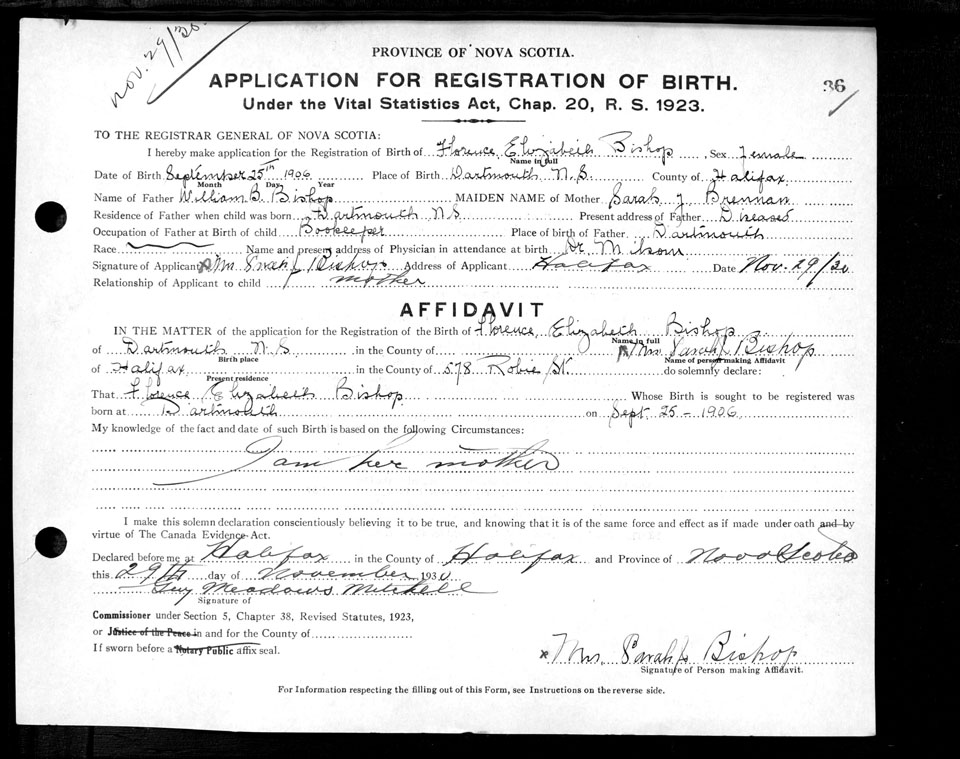 Nov. 29/30.
PROVINCE OF NOVA SCOTIA.
APPLICATION FOR REGISTRATION OF BIRTH.
36
Under the Vital Statistics Act, Chap. 20, R. S. 1923.
TO THE REGISTRAR GENERAL OF NOVA SCOTIA:
I hereby make application for the Registration of Birth of Florence Elizabeth Bishop, Sex Female
Name in full
Date of Birth September 25th 1906 Place of Birth Dartmouth N.S. County of Halifax
Month Day Year
Name of Father William B. Bishop MAIDEN NAME of Mother Sarah J Brennan
Residence of Father when child was born Dartmouth N S Present address of Father Diseased
Occupation of Father at Birth of child Bookeeper Place of birth of Father Dartmouth
Race Name and present address of Physician in attendance at birth Dr.
Signature of Applicant x Mrs Sarah J Bishop Address of Applicant Halifax Date Nov. 29/30
Relationship of Applicant to child mother
AFFIDAVIT
IN THE MATTER of the application for the Registration of the Birth of Florence Elizabeth Bishop
Name in full
of Dartmouth N.S in the County of x Mrs Sarah J Bishop
Birth place Name of person making Affidavit
of Halifax in the County of 578 Robie St. do solemnly declare:
Present residence
That Florence Elizabeth Bishop Whose Birth is sought to be registered was
born at Dartmouth on Sept. 25 - 1906
My knowledge of the fact and date of such Birth is based on the following Circumstances:
I am her mother
I make this solemn declaration conscientiously believing it to be true, and knowing that it is of the same force and effect as if made under oath and by
virtue of The Canada Evidence Act.
Declared before me at Halifax in the County of Halifax and Province of Nova Scotia
this 29th day of November 1930
Guy Meadows Mitchell
Signature of
Commissioner under Section 5, Chapter 38, Revised Statutes, 1923,
or Justice of the Peace in and for the County of
If sworn before a Notary Public affix seal.
x Mrs. Sarah J Bishop
Signature of Person making Affidavit.
For Information respecting the filling out of this Form, see Instructions on the reverse side.